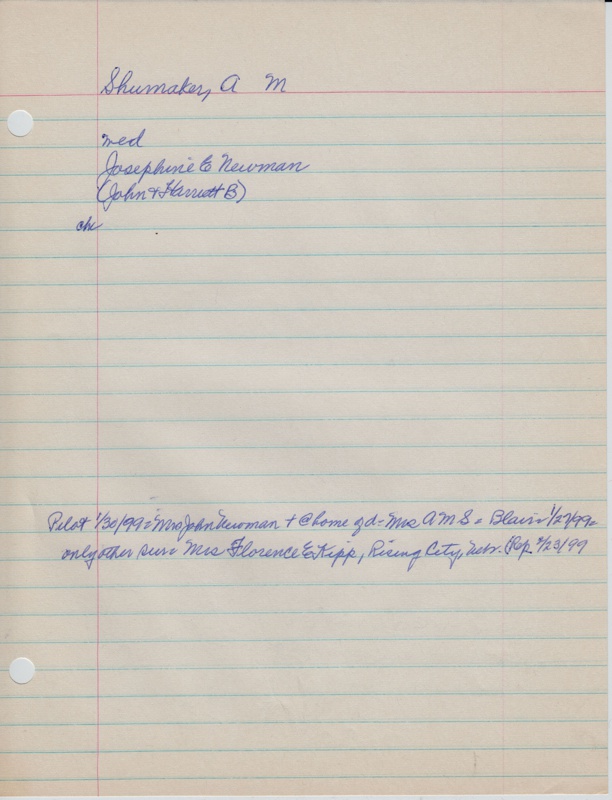 Shumaker, A M
wed
Josephine E Newman
(John + Harriett B)
chr
Pilot 1/30/99 = Mrs John Newman + @ home of d = Mrs A M S = Blair = 1/27/99 =
only other sur = Mrs Florence E Kipp, Rising City, Nebr. (Rep 2/23/99